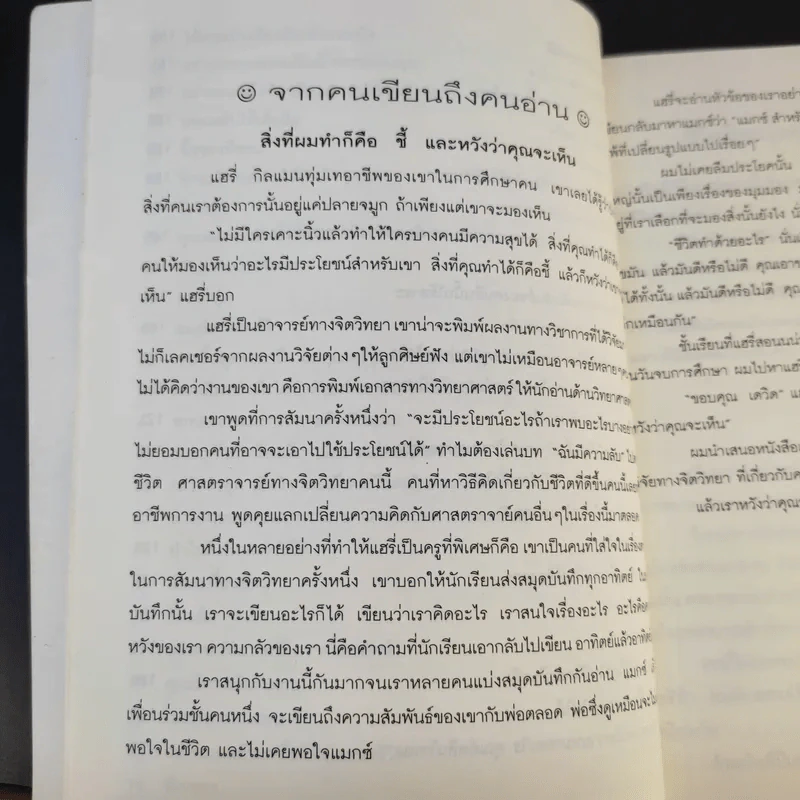 ☺ จากคนเขียนถึงคนอ่าน ☺
สิ่งที่ผมทำก็คือ ชี้ และหวังว่าคุณจะเห็น
แฮรี่ กิลแมนทุ่มเทอาชีพของเขาในการศึกษาคน เขาเลยได้รู้ว่า
สิ่งที่คนเราต้องการนั้นอยู่แค่ปลายจมูก ถ้าเพียงแต่เขาจะมองเห็น
"ไม่มีใครเคาะนิ้วแล้วทำให้ใครบางคนมีความสุขได้ สิ่งที่คุณทำได้คือ
คนให้มองเห็นว่าอะไรมีประโยชน์สำหรับเขา สิ่งที่คุณทำได้ก็คือชี้ แล้วก็หวังว่า
เห็น" แฮรี่บอก
แฮรี่เป็นอาจารย์ทางจิตวิทยา เขาน่าจะพิมพ์ผลงานทางวิชาการที่ได้วิจัย
ไม่ก็เลคเชอร์จากผลงานวิจัยต่างๆให้ลูกศิษย์ฟัง แต่เขาไม่เหมือนอาจารย์หลาย
ไม่ได้คิดว่างานของเขา คือการพิมพ์เอกสารทางวิทยาศาสตร์ ให้นักอ่านด้านวิทยาศาสตร์
เขาพูดที่การสัมนาครั้งหนึ่งว่า "จะมีประโยชน์อะไรถ้าเราพบอะไรบางอย่าง
ไม่ยอมบอกคนที่อาจจะเอาไปใช้ประโยชน์ได้" ทำไมต้องเล่นบท "ฉันมีความลับ"
ชีวิต ศาสตราจารย์ทางจิตวิทยาคนนี้ คนที่หาวิธีคิดเกี่ยวกับชีวิตที่ดีขึ้นคนนี้
อาชีพการงาน พูดคุยแลกเปลี่ยนความคิดกับศาสตราจย์คนอื่นๆในเรื่องนี้มาตลอด
หนึ่งในหลายอย่างที่ทำให้แฮรี่เป็นครูที่พิเศษก็คือ เขาเป็นคนที่ใส่ใจในเรื่อง
ในการสัมนาทางจิตวิทยาครั้งหนึ่ง เขาบอกให้นักเรียนส่งสมุดบันทึกทุกอาทิตย์
บันทึกนั้น เราจะเขียนอะไรก็ได้ เขียนว่าเราคิดอะไร เราสนใจเรื่องอะไร อะไรคือ
หวังของเรา ความกลัวของเรา นี่คือคำถามที่นักเรียนเอากลับไปเขียน อาทิตย์แล้วอาทิตย์
เราสนุกกับงานนี้กันมากจนเราหลายคนแบ่งสมุดบันทึกกันอ่าน แมกซ์
เพื่อนร่วมชั้นคนหนึ่ง จะเขียนถึงความสัมพันธ์ของเขากับพ่อตลอด พ่อซึ่งดูเหมือนจะ
พอใจในชีวิต และไม่เคยพอใจแมกซ์
แฮรี่จะอ่านหัวข้อของเราอย่า
ขียนกลับมาหาแมกซ์ว่า "แมกซ์ สำหรั
ที่เปลี่ยนรูปแบบไปเรื่อยๆ"
ผมไม่เคยลืมประโยคนั้น
หญ่นั้นเป็นเพียงเรื่องของมุมมอง
ยู่ที่เราเลือกที่จะมองสิ่งนั้นยังไง
"ชีวิตทำด้วยอะไร" นั่น
แล้วมันดีหรือไม่ดี คุณเอา
ได้ทั้งนั้น แล้วมันดีหรือไม่ดี
เหมือนกัน"
ชั้นเรียนที่แฮรี่สอนนน
วันจบการศึกษา ผมไปหาแฮรี่
"ขอบคุณ เดวิด"
หวังว่าคุณจะเห็น"
ผมนำเสนอหนังสือ
จัยทางจิตวิทยา ที่เกี่ยวกับค
แล้วเราหวังว่าคุณ